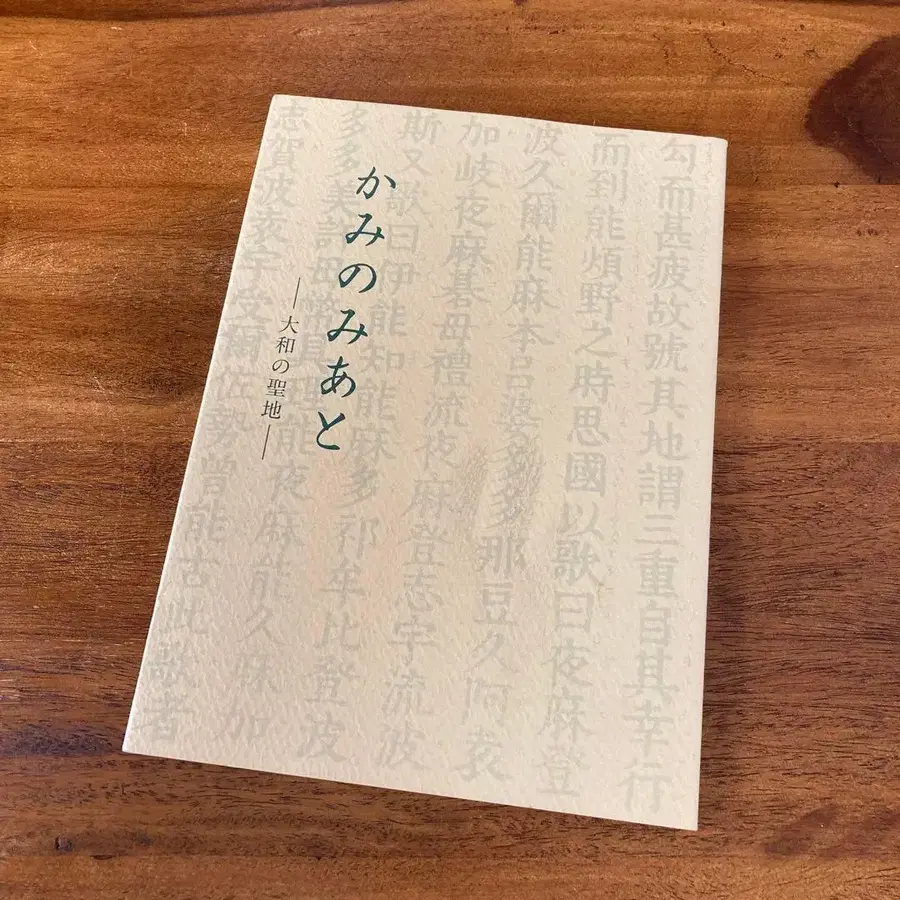 勾而甚疲故號其地謂三重自其幸行
而到能煩野之時思國以歌曰夜麻登
波久爾能麻本呂波多多那豆久阿袁
加岐夜麻碁母禮流夜麻登志宇流波
斯又歌曰伊能知能麻多祁牟比登波
多多美許母理能夜麻能久加
志賀波袁宇受爾佐勢曾能古此歌者
かみのみあと
―大和の聖地―